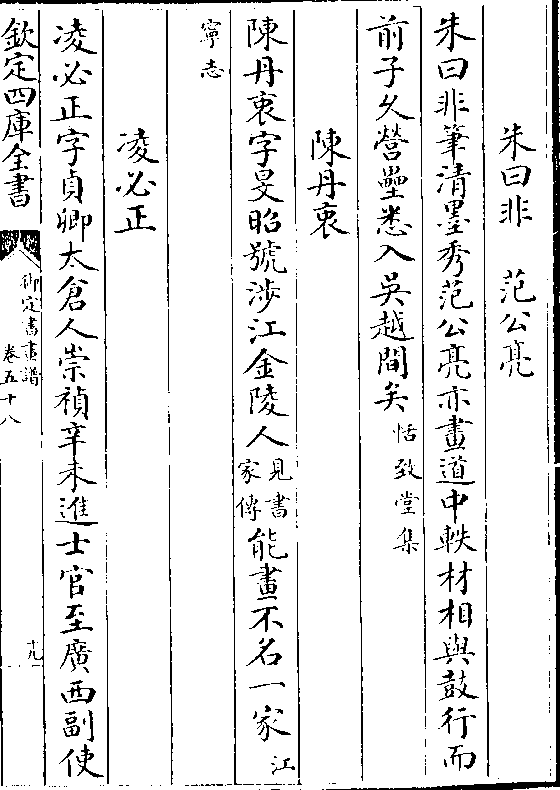 朱曰非　范公亮
朱曰非筆清墨秀范公亮亦畫道中軼材相與鼓行而
前子久營壘悉入吳越間矣恬致堂集
陳丹衷
陳丹衷字旻昭號涉江金陵人見書家傳能畫不名一家江
寧志
凌必正
凌必正字貞卿太倉人崇禎辛未進士官至廣西副使
欽定四庫全書
御定書畫譜
卷五十八
十九